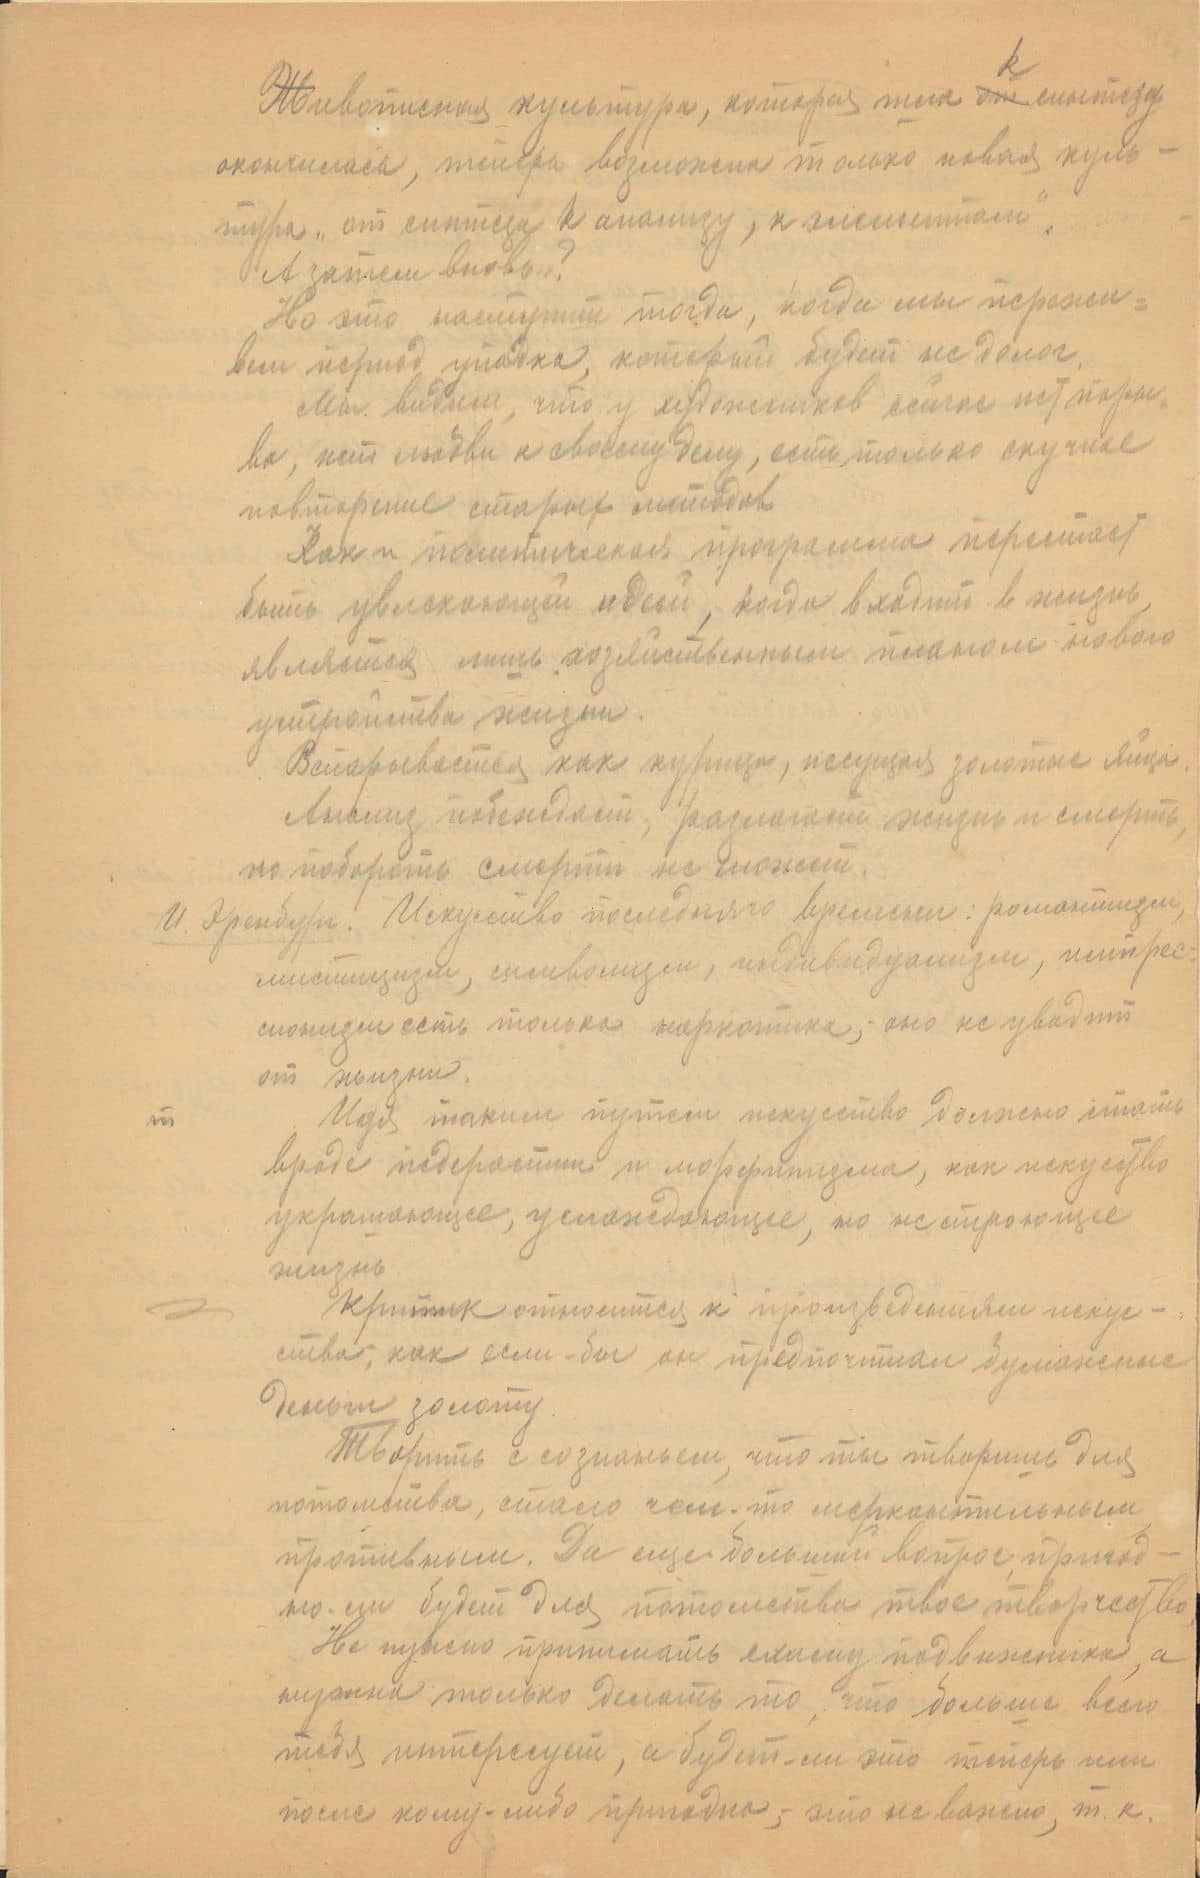 к
Живописная культура, которая шла от синтеза
окончилась, теперь возможна только новая куль-
тура „от синтеза к анализу, к элементам".
А затем вновь?
Но это наступит тогда, когда мы пережи-
вем период упадка, который будет не долог.
Мы видим, что у художников сейчас нет поры-
ва, нет любви к своему делу, есть только скучное
повторение старых методов
Как и политическая программа перестает
быть увлекающей идеей, когда входит в жизнь,
является лишь хозяйственным планом нового
устройства жизни.
Вспарывается как курица, несущая золотые яйца.
Анализ побеждает, разлагает жизнь и смерть,
но побороть смерти не может.
И. Эренбург. Искусство последнего времени: романтизм,
мистицизм, символизм, индивидуализм, импрес-
сионизм есть только наркотика,- оно не уводит
от жизни.
т
Идя таким путем искусство должно стать
вроде педерастии и морфинизма, как искусство
украшающее, услаждающее, но не строющее
жизнь
Критик относится к произведениям искус-
ства, как если-бы он предпочитал бумажные
деньги золоту.
Творить с сознаньем, что ты творишь для
потомства, стало чем-то меркантильным,
противным. Да еще большой вопрос, пригод-
но-ли будет для потомства твое творчество,
Не нужно принимать схиму подвижника, а
нужно только делать то, что больше всего
тебя интересует, а будет-ли это теперь или
после кому-либо пригодно,- это не важно, т. к.